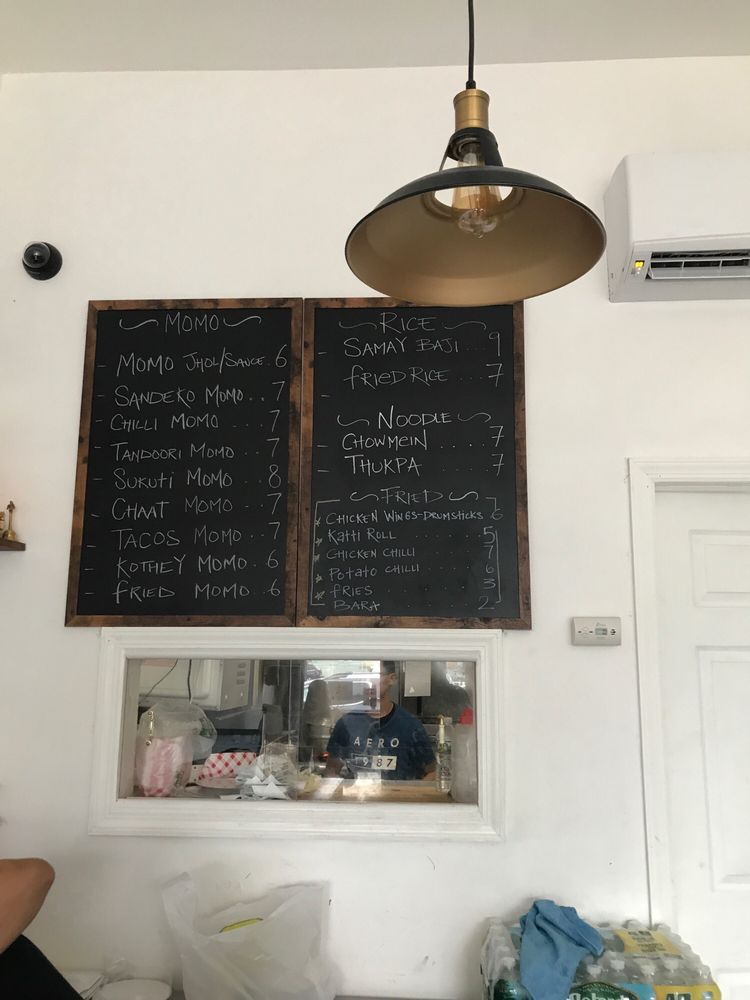 MOMO
- MOMO JHOL/SAUCE . 6
- SANDEKO MOMO . . 7
- CHILLI MOMO . . . 7
- TANDOORI MOMO . . 7
- SUKUTI MOMO . . 8
- CHAAT MOMO . . 7
- TACOS MOMO . . 7
- KOTHEY MOMO . . 6
- FRIED MOMO . . 6
RICE
- SAMAY BAJI . . . 9
- FRIED RICE . . . 7
NOODLE
- CHOWMEIN . . . . 7
- THUKPA . . . . 7
FRIED
CHICKEN WINGS-DRUMSTICKS 6
KATTI ROLL . . . . 5
CHICKEN CHILLI . . . . 7
POTATO CHILLI . . . . 6
FRIES . . . . 3
BARA . . . . 2
AERO
987